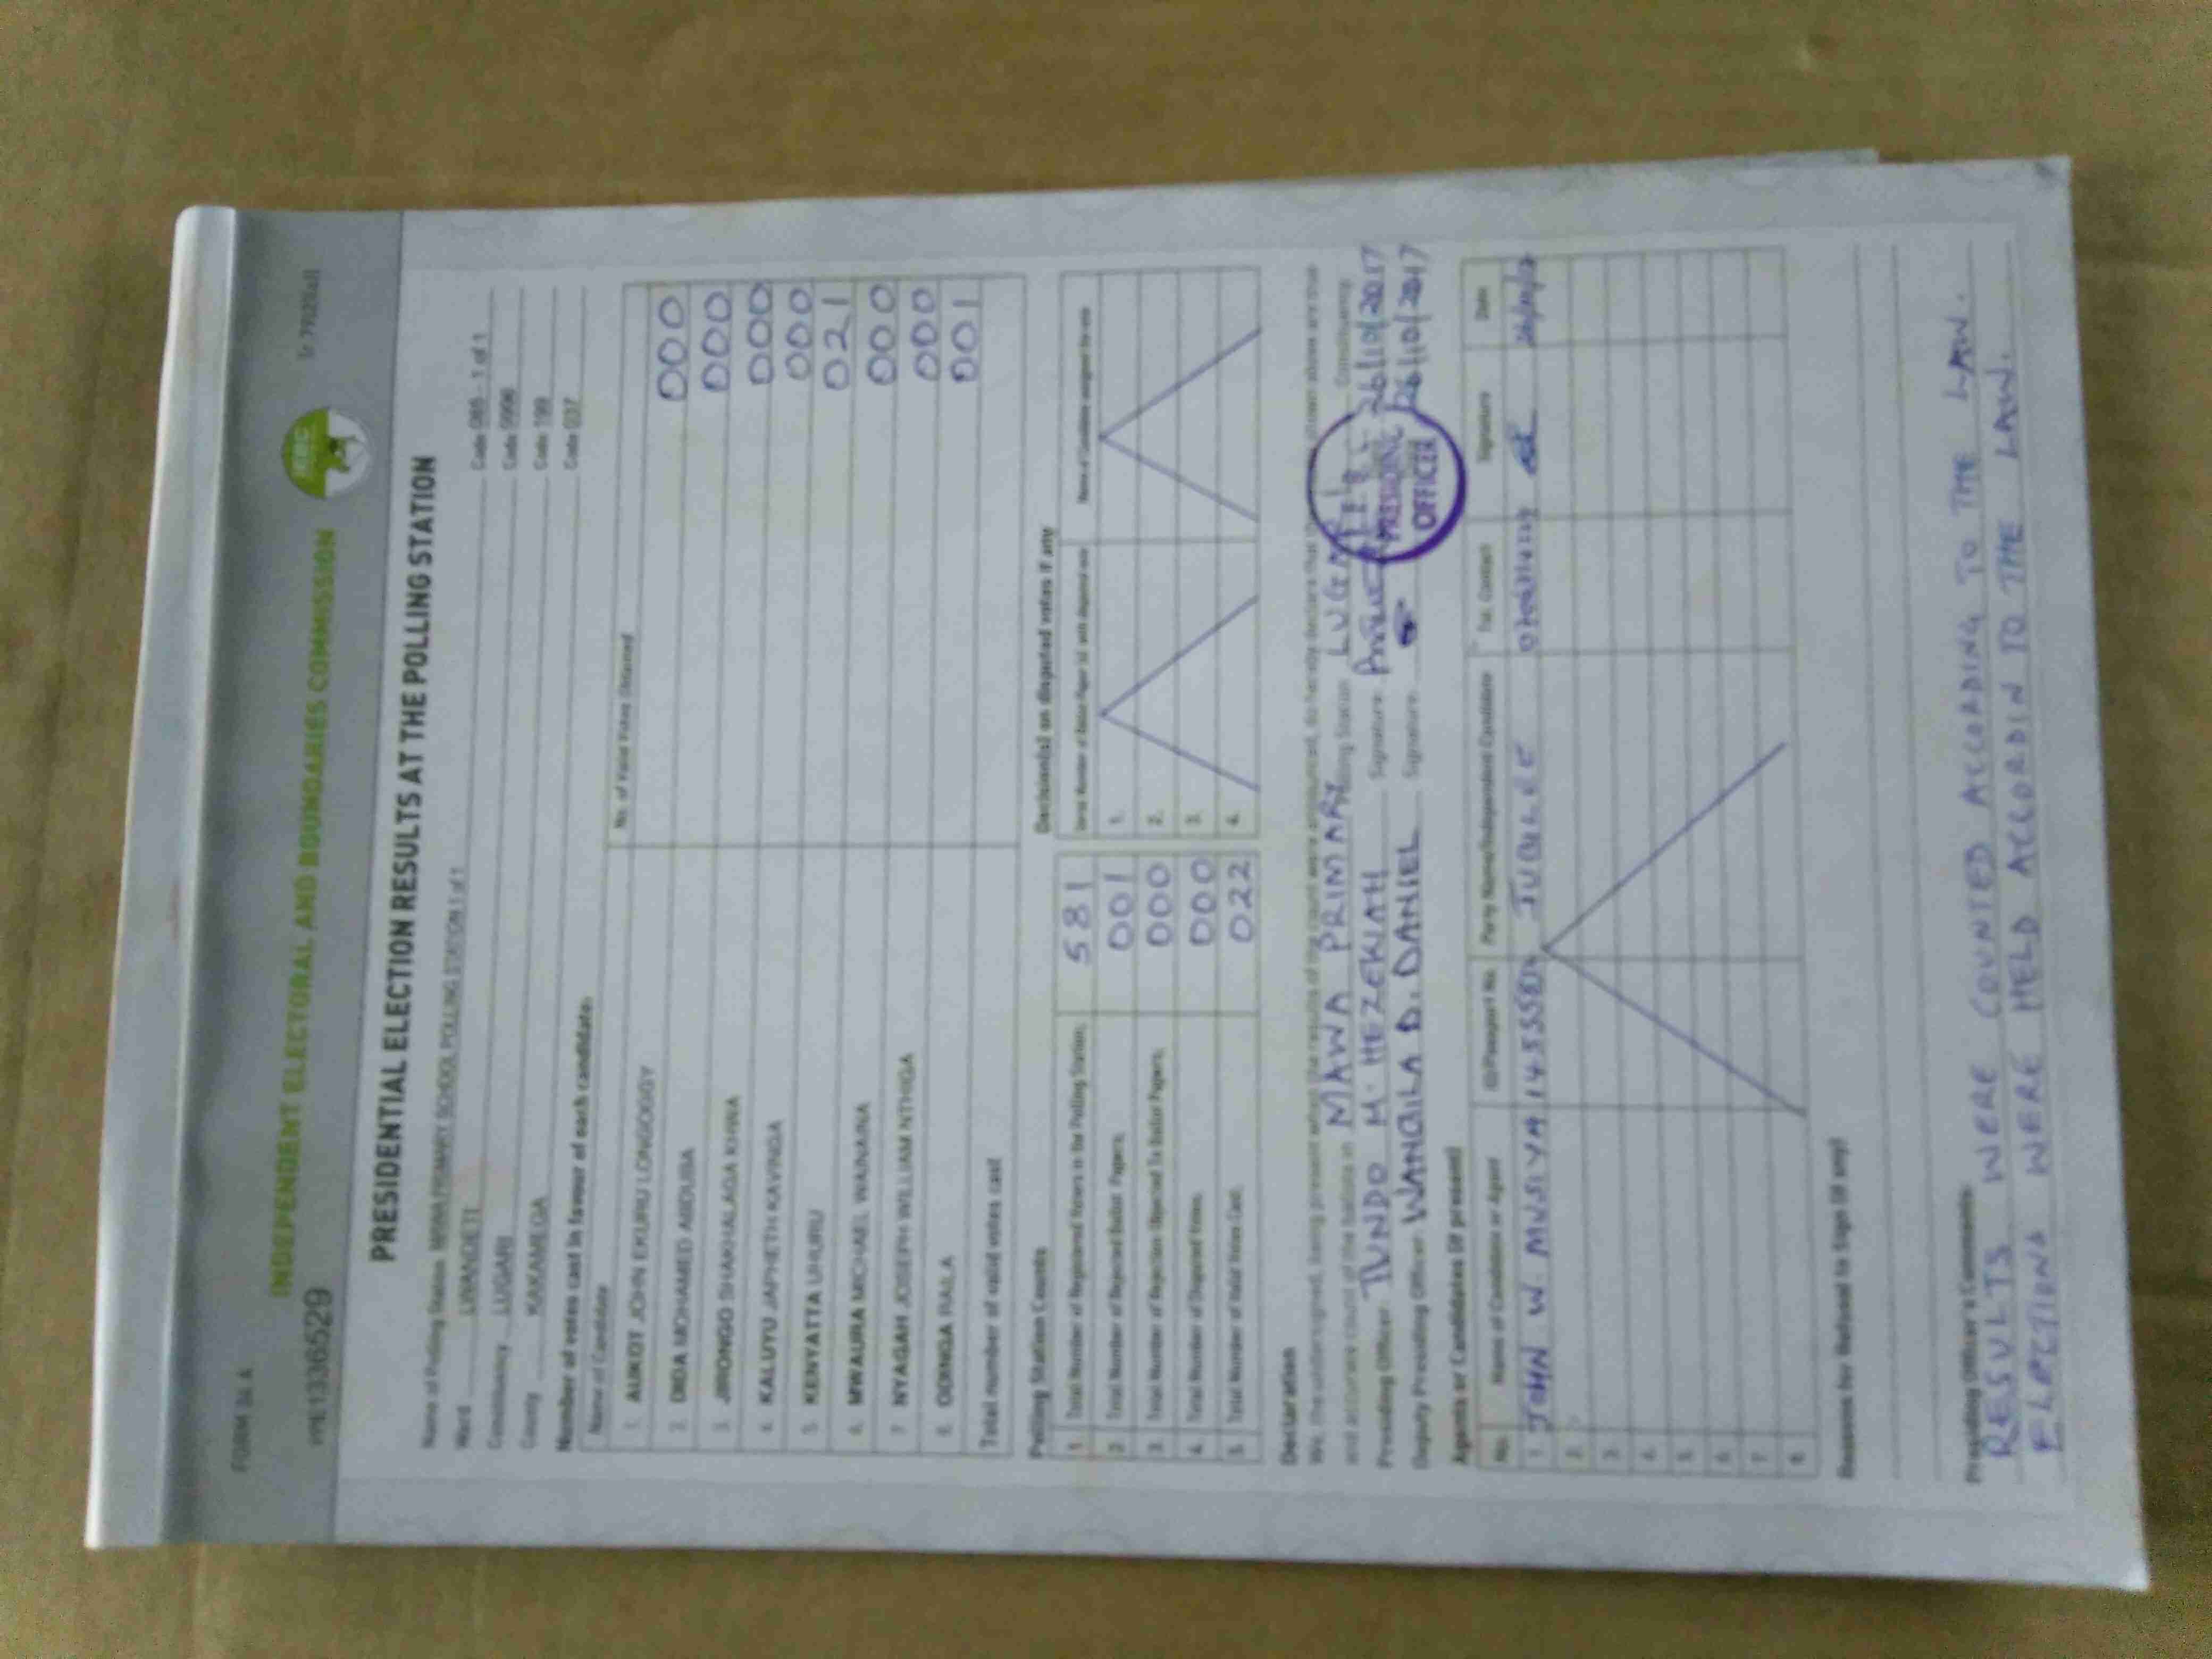 FORM 34 A
INDEPENDENT ELECTORAL AND BOUNDARIES COMMISSION
IEBC
PRE1336529
PRESIDENTIAL ELECTION RESULTS AT THE POLLING STATION
Name of Polling Station MAWA PRIMARY SCHOOL POLLING STATION 1 of 1 Code 085 - 1 of 1
Ward LWANDETI Code 0996
Constituency LUGARI Code 199
County KAKAMEGA Code 037
Number of votes cast in favour of each candidate:
Name of Candidate No. of Valid Votes Obtained
1. AUKOT JOHN EKURU LONGOGGY 000
2. DIDA MOHAMED ABDUBA 000
3. JIRONGO SHAKHALAGA KHWA 000
4. KALUYU JAPHETH KAVINGA 000
5. KENYATTA UHURU 021
6. MWAURA MICHAEL WAINAINA 000
7. NYAGAH JOSEPH WILLIAM NTHIGA 000
8. ODINGA RAILA 001
Total number of valid votes cast
Polling Station Counts
1. Total Number of Registered Voters in the Polling Station: 581
2. Total Number of Rejected Ballot Papers: 001
3. Total Number of Rejection Objected To Ballot Papers: 000
4. Total Number of Disputed Votes: 000
5. Total Number of Valid Votes Cast: 022
Decision(s) on disputed votes if any
Serial Number of Ballot Paper (s) with disputed vote
1.
2.
3.
4.
Declaration
We, the undersigned, being present when the results of the count were announced, do hereby declare that the results shown above are true
and accurate count of the ballots in MAWA PRIMARY Polling Station LUGARI Constituency
Presiding Officer TUNDO H. HEZEKIAH Signature 26/10/2017
Deputy Presiding Officer WANGILA D. DANIEL Signature 26/10/2017
PRESIDING OFFICER
Agents or Candidates (if present)
No. Name of Candidate or Agent ID/Passport No. Party Name/Independent Candidate Tel. Contact Signature Date
1. JOHN W MUSIYA JUBILEE
2.
3.
4.
5.
6.
7.
8.
Reasons for Refusal to Sign (if any)
Presiding Officer's Comments:
RESULTS WERE COUNTED ACCORDING TO THE LAW.
ELECTIONS WERE HELD ACCORDIN TO THE LAW.